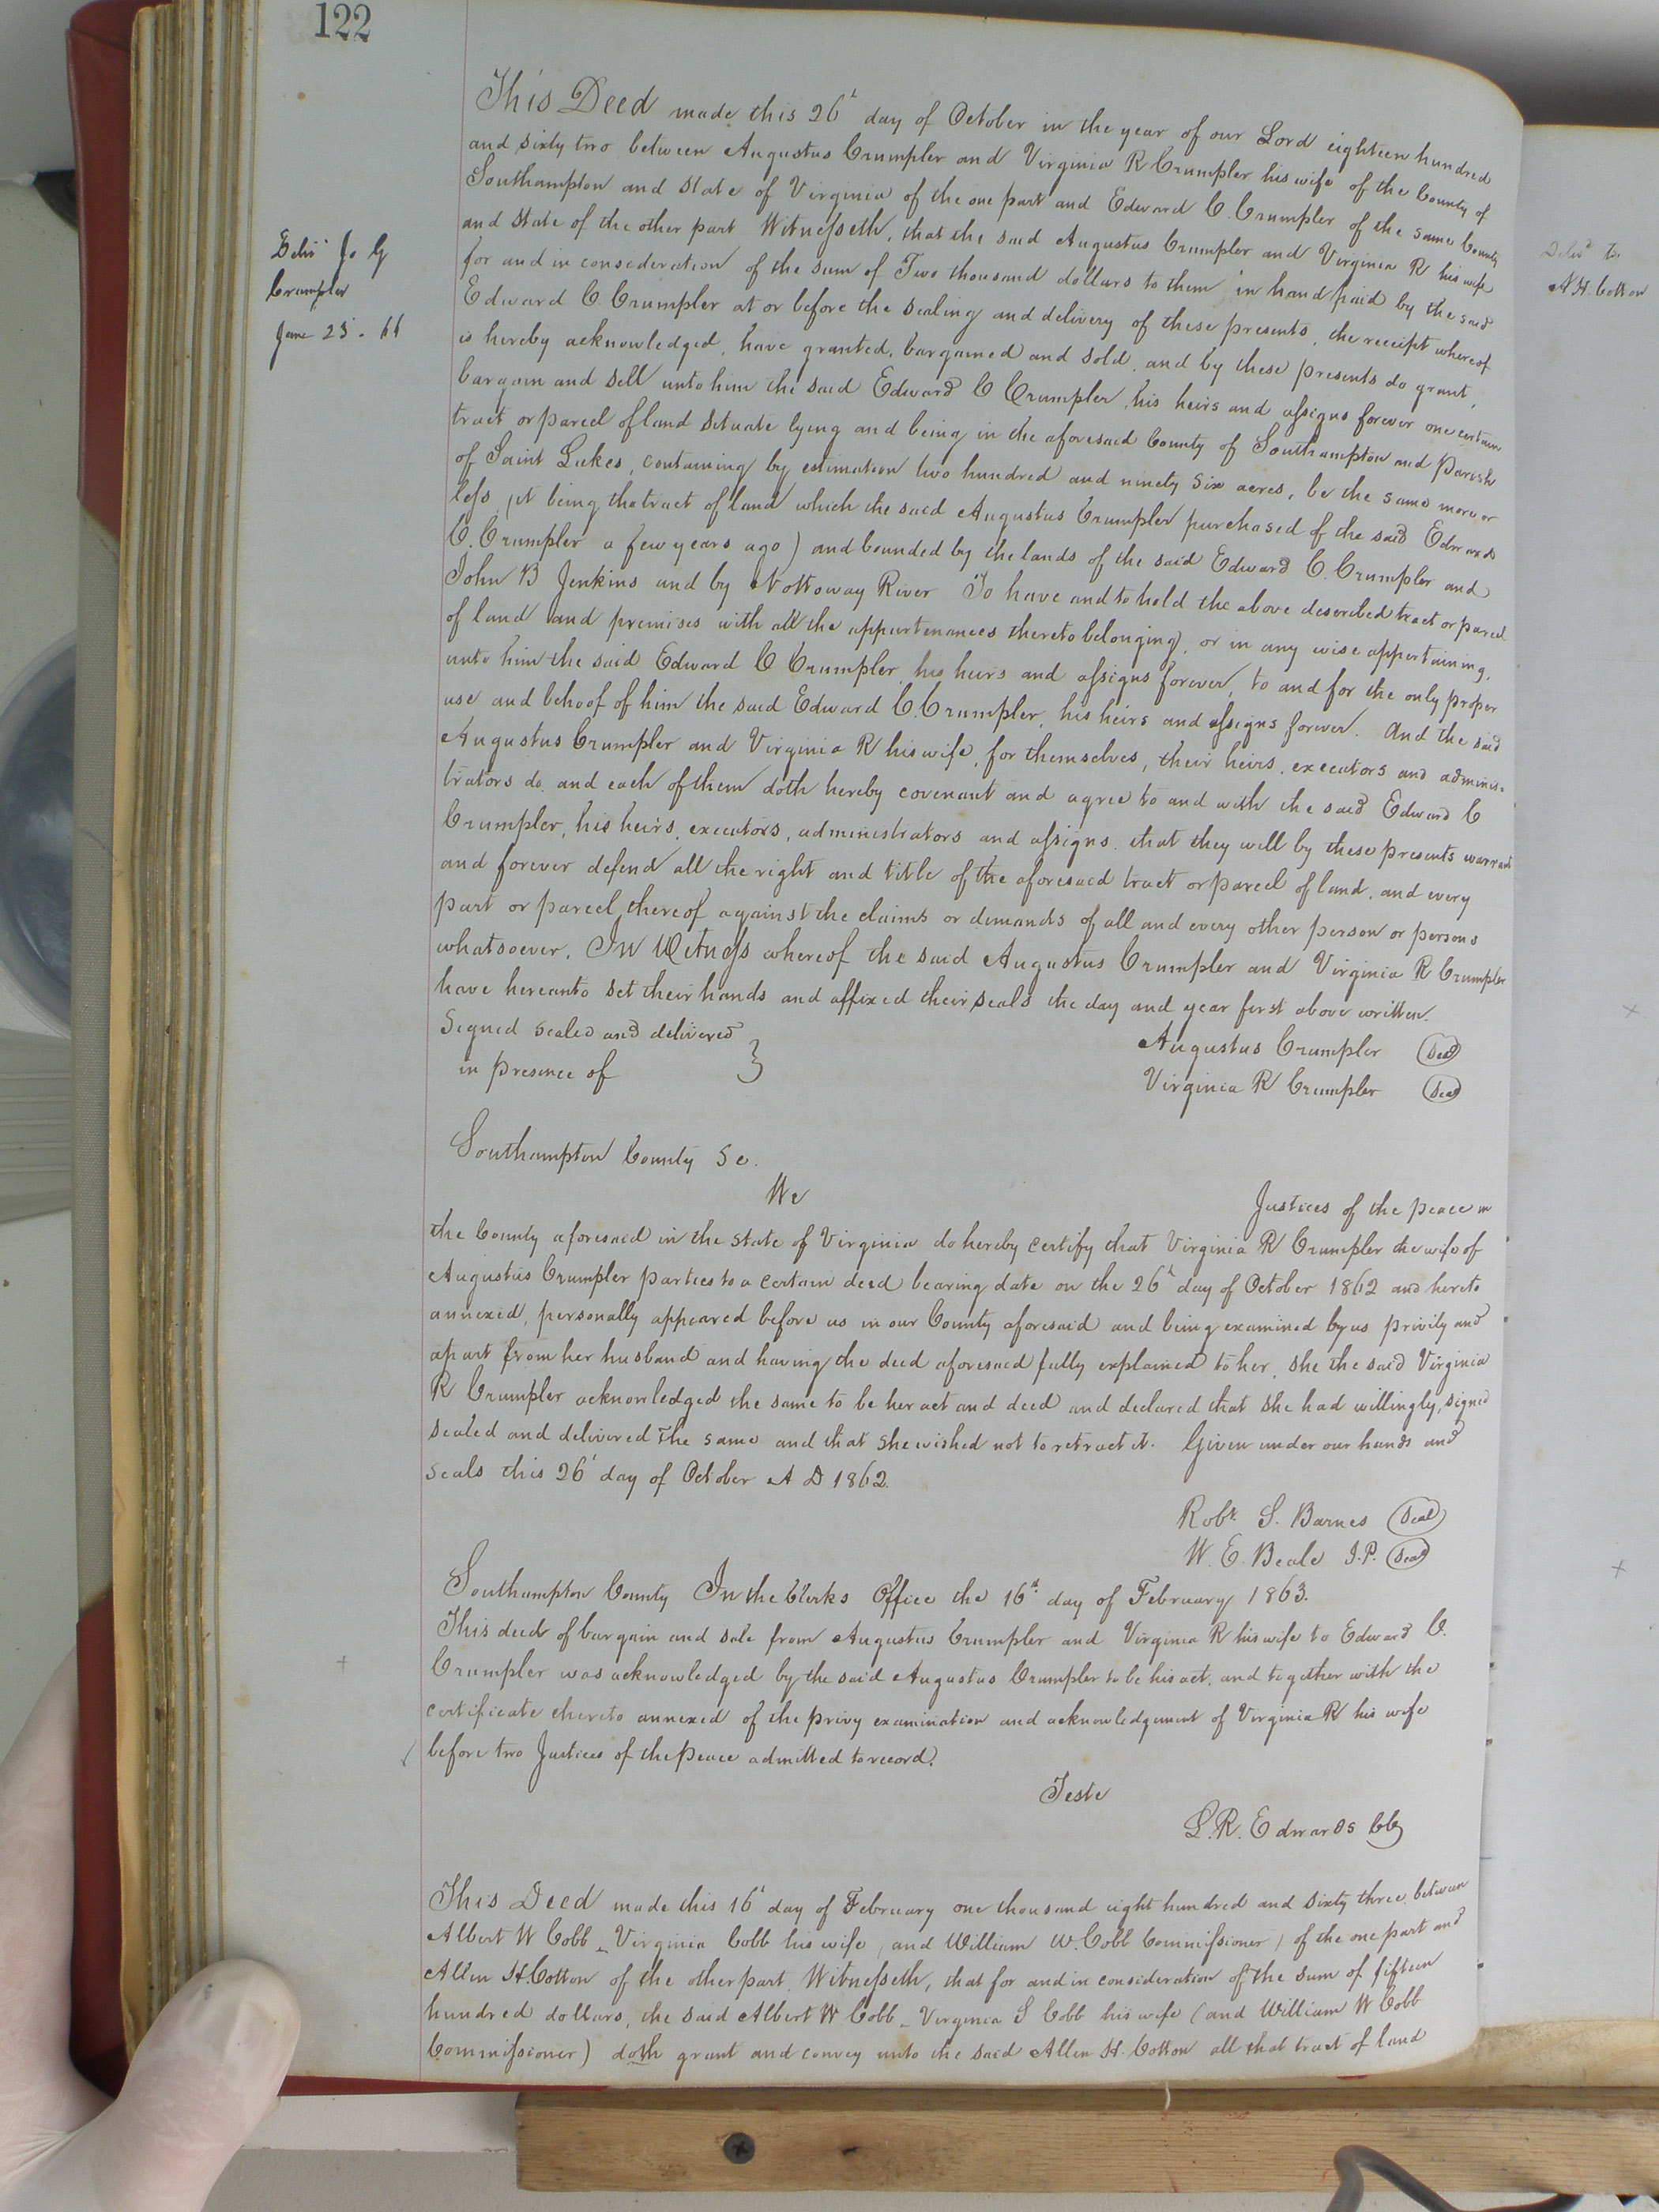 122
This Deed made this 26t day of October in the year of our Lord eighteen hundred
and sixty two between Augustus Crumpler and Virginia R Crumpler his wife of the County of
Southampton and State of Virginia of the one part and Edward C. Crumpler of the same County
and State of the other part Witnesseth, that the said Augustus Crumpler and Virginia R his wife
for and in consideration of the sum of Two thousand dollars to them in hand paid by the said
Edward C. Crumpler at or before the sealing and delivery of these presents, the receipt whereof
is hereby acknowledged, have granted, bargained and sold, and by these presents do grant,
bargain and sell unto him the said Edward C Crumpler, his heirs and assigns forever one certain
tract or parcel of land situate lying and being in the aforesaid County of Southampton and Parish
of Saint Lukes, containing by estimation two hundred and ninety six acres, be the same more or
less, (it being the tract of land which the said Augustus Crumpler purchased of the said Edward
C. Crumpler a few years ago) and bounded by the lands of the said Edward C. Crumpler and
John B Jenkins and by Nottoway River To have and to hold the above described tract or parcel
of land and premises with all the appurtenances thereto belonging, or in any wise appertaining,
unto him the said Edward C Crumpler, his heirs and assigns forever, to and for the only proper
use and behoof of him the said Edward C. Crumpler, his heirs and assigns forever. And the said
Augustus Crumpler and Virginia R his wife, for themselves, their heirs, executors and adminis-
trators do, and each of them doth hereby covenant and agree to and with the said Edward C
Crumpler, his heirs, executors, administrators and assigns, that they will by these presents warrant
and forever defend all the right and title of the aforesaid tract or parcel of land, and every
part or parcel thereof against the claims or demands of all and every other person or persons
whatsoever. In Witness whereof the said Augustus Crumpler and Virginia R Crumpler
have hereunto set their hands and affixed their seals the day and year first above written.
Signed sealed and delivered
in presence of }
Augustus Crumpler (Seal)
Virginia R Crumpler (Seal)
Deliv Jo G
Crumpler
June 23 - 66
Deliv to
A H. Cotton
Southampton County Sc.
We Justices of the peace in
the County aforesaid in the State of Virginia do hereby certify that Virginia R Crumpler the wife of
Augustus Crumpler parties to a certain deed bearing date on the 26t day of October 1862 and hereto
annexed, personally appeared before us in our County aforesaid and being examined by us privily and
apart from her husband and having the deed aforesaid fully explained to her, she the said Virginia
R Crumpler acknowledged the same to be her act and deed and declared that she had willingly, signed
sealed and delivered the same and that she wished not to retract it. Given under our hands and
seals this 26t day of October A D 1862.
Robt. S. Barnes (Seal)
W. E. Beale J.P. (Seal)
Southampton County In the Clerks Office the 16th day of February 1863.
This deed of bargain and sale from Augustus Crumpler and Virginia R his wife to Edward C.
Crumpler was acknowledged by the said Augustus Crumpler to be his act, and together with the
certificate thereto annexed of the privy examination and acknowledgement of Virginia R his wife
before two Justices of the peace admitted to record.
Teste
L. R. Edwards Clk
This Deed made this 16t day of February one thousand eight hundred and sixty three between
Albert W Cobb - Virginia Cobb his wife, and William W. Cobb Commissioner, of the one part and
Allen H. Cotton of the other part, Witnesseth, that for and in consideration of the sum of fifteen
hundred dollars, the said Albert W Cobb - Virginia S Cobb his wife (and William W Cobb
Commissioner) doth grant and convey unto the said Allen H. Cotton all that tract of land